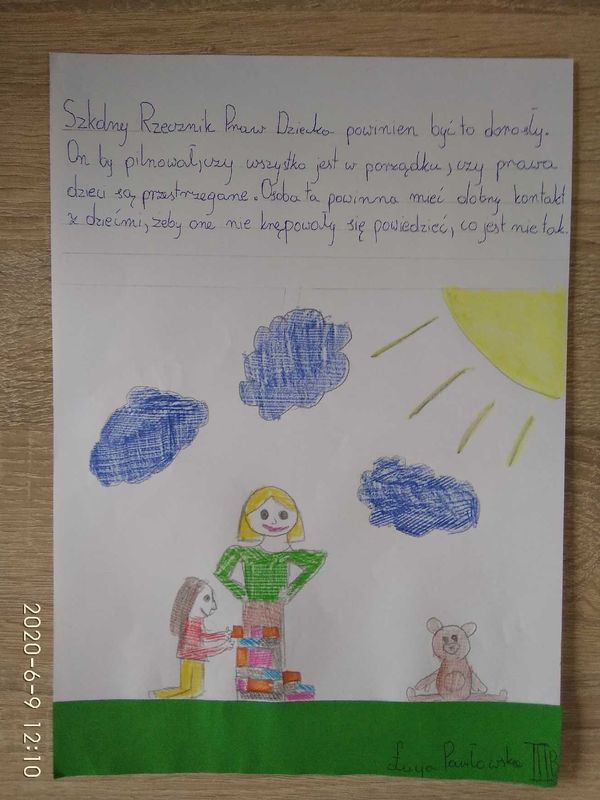 Szkolny Rzecznik Praw Dziecka powinien być to dorosły.
On by pilnował, czy wszystko jest w porządku, czy prawa
dzieci są przestrzegane. Osoba ta powinna mieć dobry kontakt
z dziećmi, żeby one nie krępowały się powiedzieć, co jest nie tak.
Łucja Pawłowska III B
2020-6-9 12:10